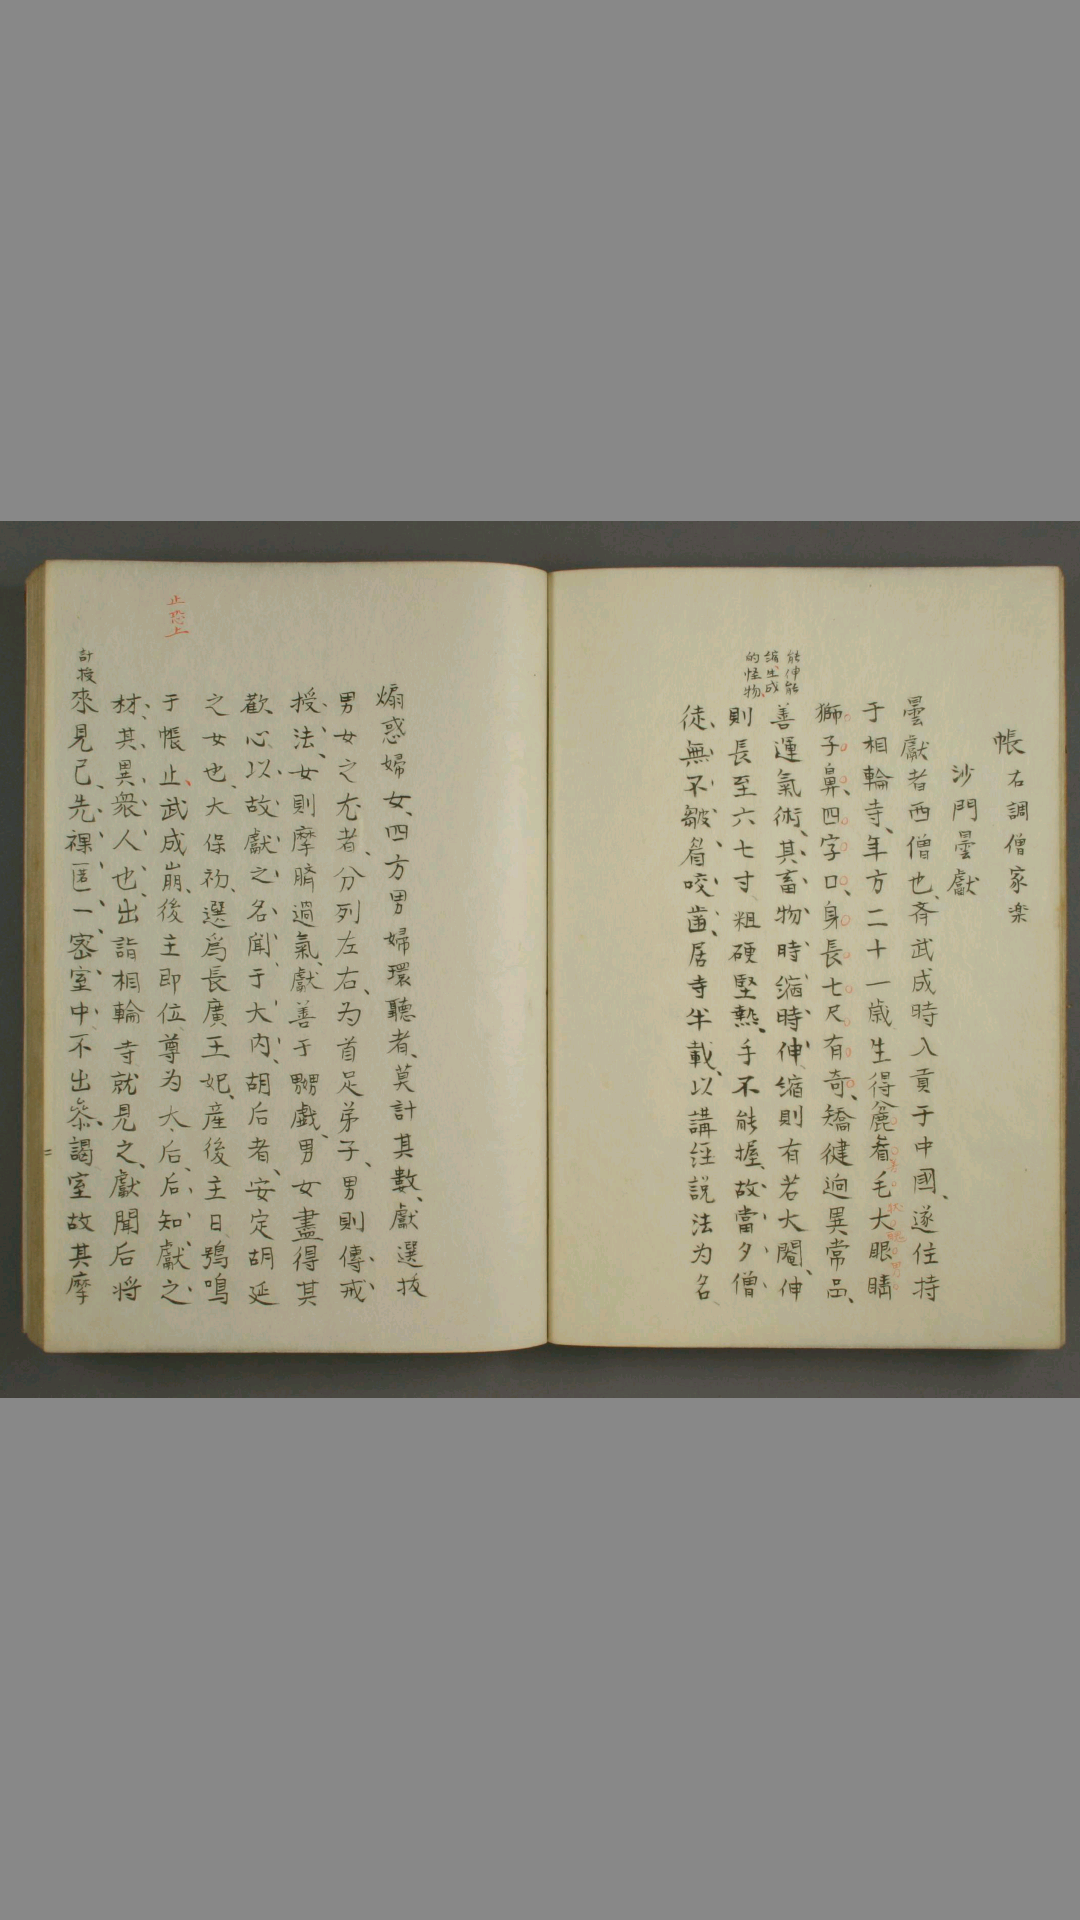 帳右調僧家楽
沙門曇獻
曇獻者西僧也、斉武成時入貢于中國、遂住持
于相輪寺、年方二十一歳、生得麁眉毛大眼睛
獅子鼻、四字口、身長七尺有奇、矯健逈異常品、
善運氣術、其畜物、時縮時伸、縮則有若大閹、伸
則長至六七寸、粗硬堅熱、手不能握、故當夕僧
徒、無不皺眉咬齒、居寺半載、以講経説法为名
能伸能
縮生成
的怪物、
煽惑婦女、四方男婦環聽者、莫計其數、獻選抜
男女之尤者、分列左右、为首足弟子、男則傳戒
授法、女則摩臍過氣、獻善于嬲戯、男女盡得其
歡心、以故獻之名聞于大内、胡后者、安定胡延
之女也、大保初、選爲長廣王妃、産後主日、鴞鳴
于帳止、武成崩、後主即位尊为太后、后知獻之
材、其異衆人也、出詣相輪寺就見之、獻聞后将
來見己、先裸匿一密室中、不出叅謁室故其摩
止恐上
計授